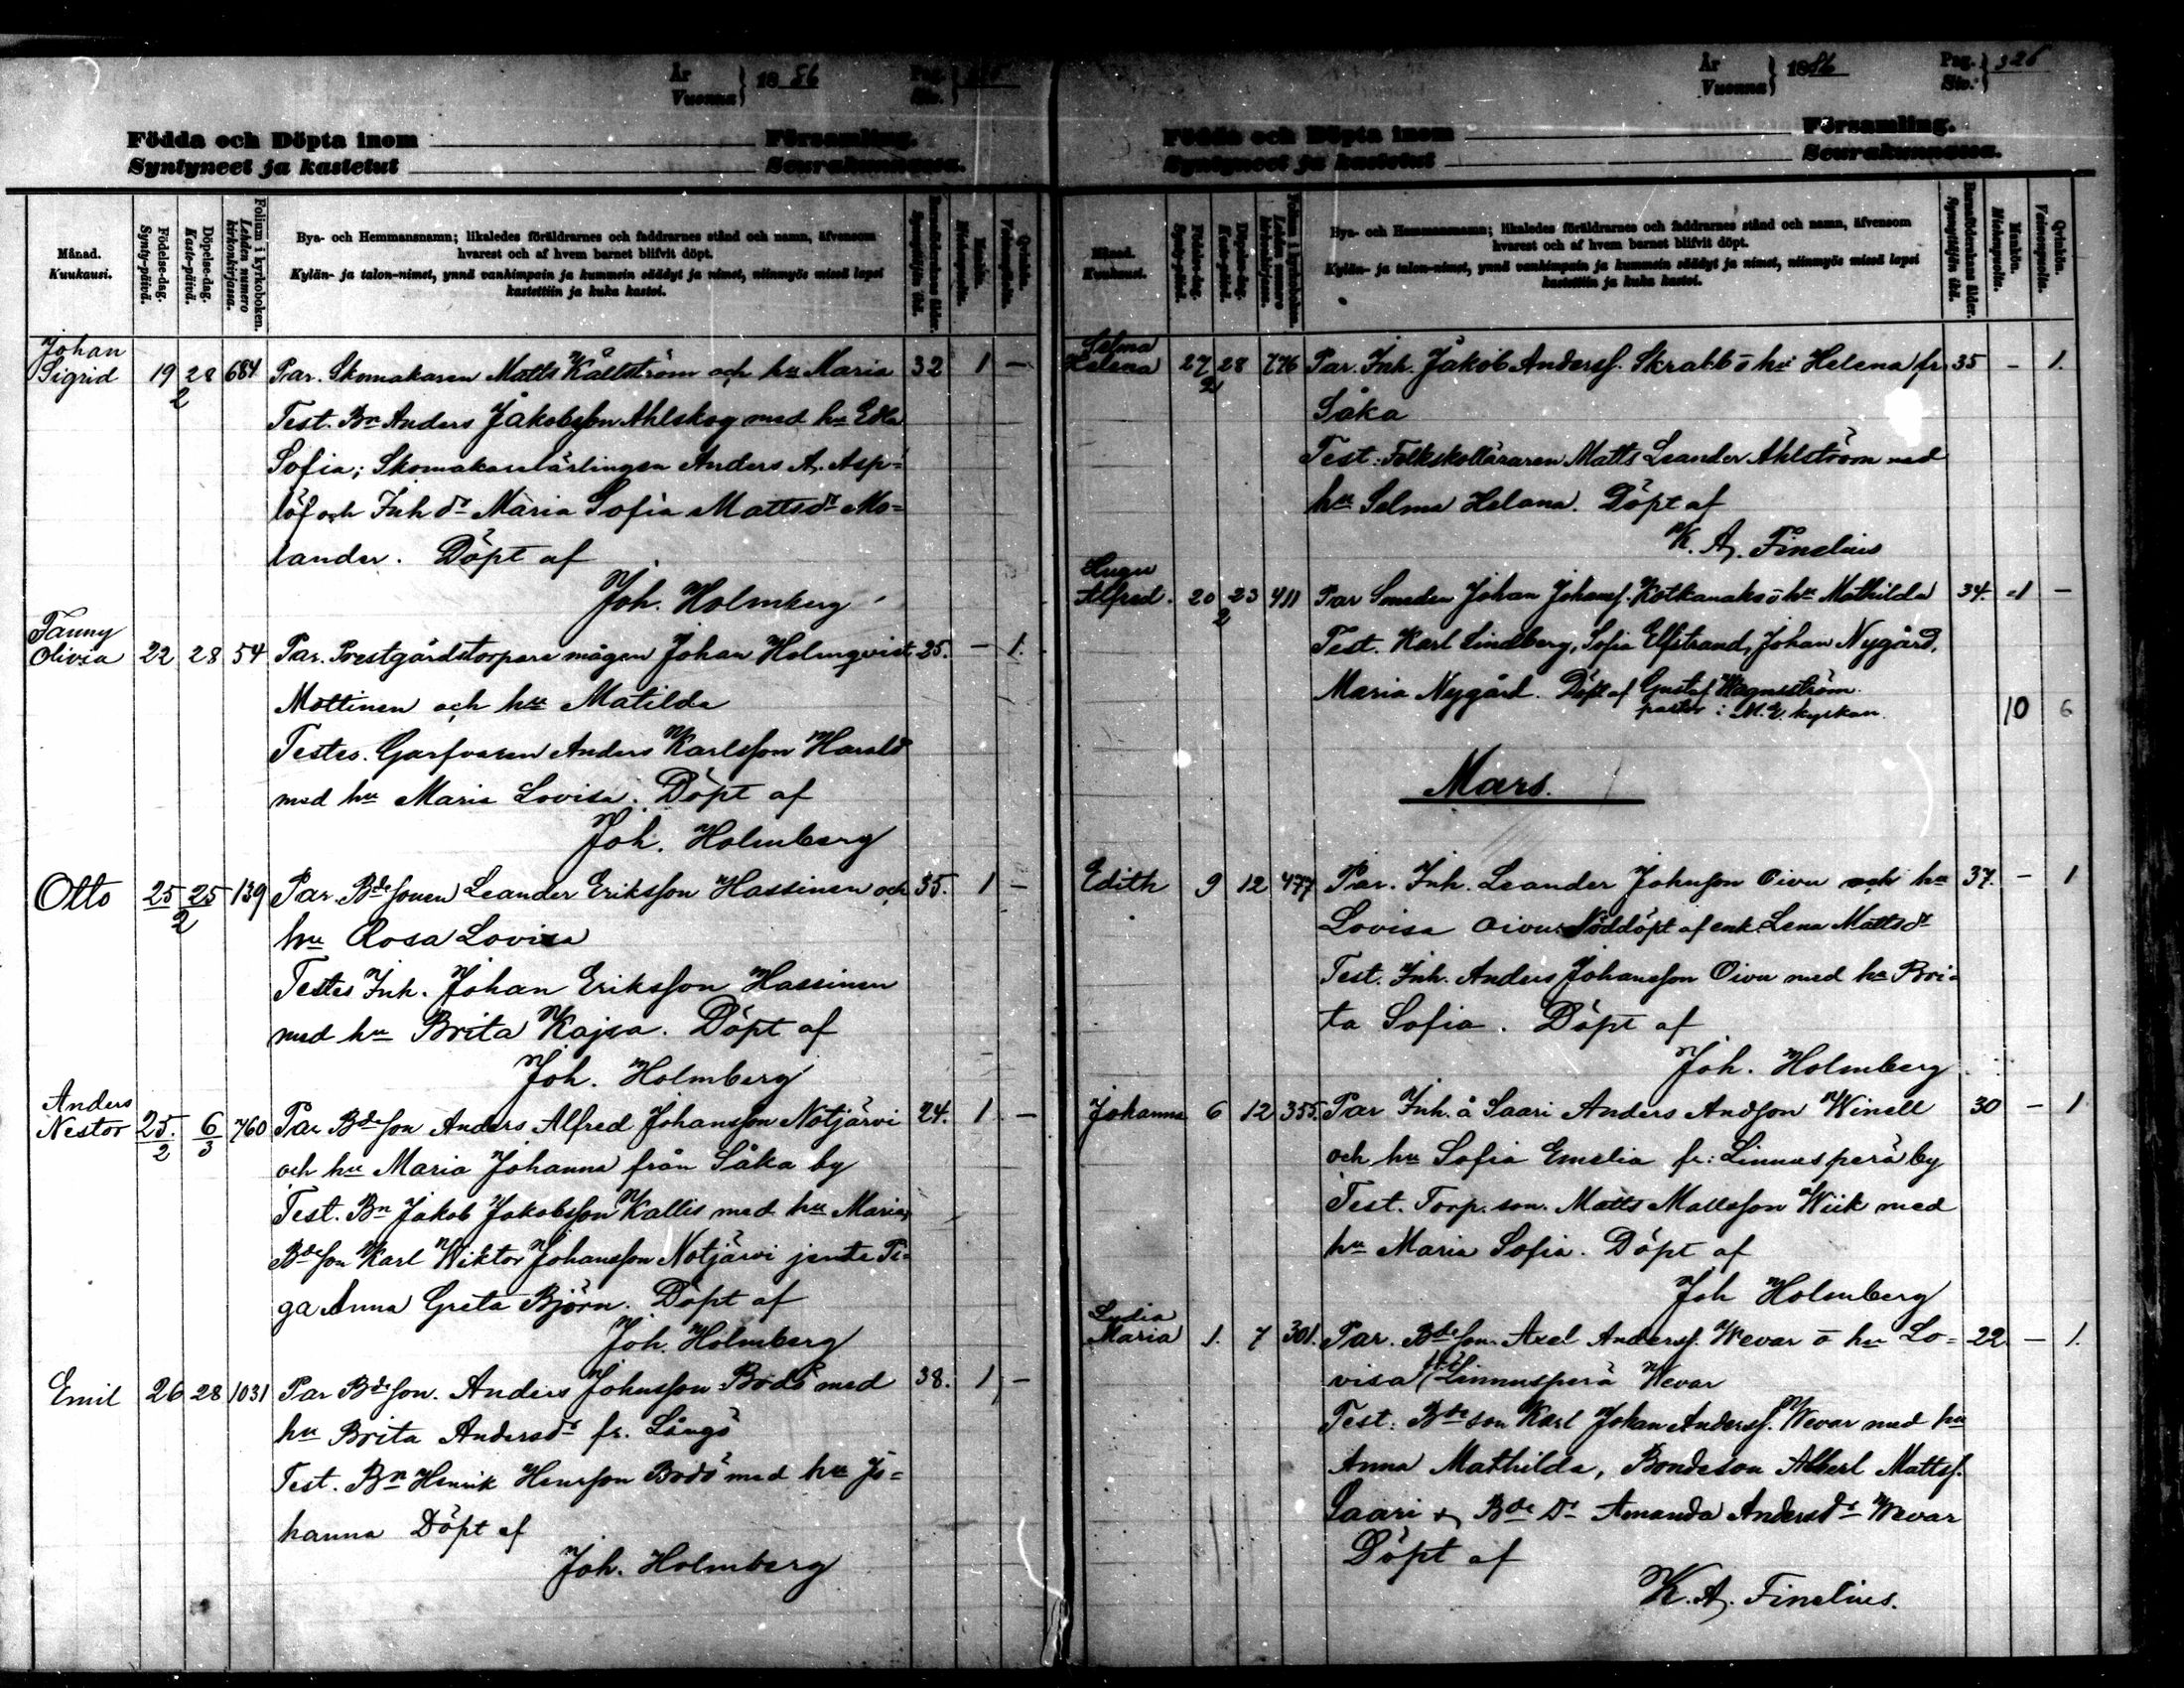 År
Vuonna } 1886
Pag.
Siv. }
Födda och Döpta inom Församling.
Syntyneet ja kastetut Seurakunnassa.
Månad.
Kuukausi.
Födelse-dag.
Synty-päivä.
Döpelse-dag.
Kaste-päivä.
Folium i kyrkoboken.
Lehden numero kirkonkirjassa.
Bya- och Hemmansnamn; likaledes föräldrarnes och faddrarnes stånd och namn, äfvensom
hvarest och af hvem barnet blifvit döpt.
Kylän- ja talon-nimet, ynnä vanhimpain ja kummein säädyt ja nimet, niinmyös missä lapsi
kastettiin ja kuka kastoi.
Barnaföderskans ålder.
Synnyttäjän ikä.
Mankön.
Miehenpuolia.
Qvinkön.
Vaimonpuolia.
Johan
Sigrid 19 28 684 Par. Skomakaren Matts Kållström och hu Maria 32 1 —
2
Test. Bn Anders Jakobsson Ahlskog med hu Edla
Sofia; Skomakarelärlingen Anders A. Asp-
löf och Inh dr Maria Sofia Mattsdr Mo=
lander. Döpt af
Joh. Holmberg
Fanny
Olivia 22 28 54 Par. Prestgårdstorpare mågen Johan Holmqvist 25. — 1.
Mottinen och hu Matilda
Testes. Garfvaren Anders Karlsson Harald
med hu Maria Lovisa. Döpt af
Joh. Holmberg
Otto 25 25 139 Par. Bdesonen Leander Eriksson Hassinen och 35. 1 —
2
hu Rosa Lovisa
Testes Inh. Johan Eriksson Hassinen
med hu Brita Kajsa. Döpt af
Joh. Holmberg
Anders
Nestor 25./2 6/3 760 Par Bdeson Anders Alfred Johansson Notjärvi 24. 1. —
och hu Maria Johanna från Såka by
Test. Bn Jakob Jakobsson Kallis med hu Maria,
Bdeson Karl Wiktor Johansson Notjärvi jemte Pi=
ga Anna Greta Björn. Döpt af
Joh. Holmberg
Emil 26 28 1031 Par Bdeson. Anders Johnsson Bodö med 38. 1 —
hu Brita Andersdr fr. Långö
Test. Bn Henrik Henrsson Bodö med hu Jo=
hanna Döpt af
Joh. Holmberg
År
Vuonna } 1886
Pag.
Siv. } 326
Födda och Döpta inom Församling.
Syntyneet ja kastetut Seurakunnassa.
Månad.
Kuukausi.
Födelse-dag.
Synty-päivä.
Döpelse-dag.
Kaste-päivä.
Folium i kyrkoboken.
Lehden numero kirkonkirjassa.
Bya- och Hemmansnamn; likaledes föräldrarnes och faddrarnes stånd och namn, äfvensom
hvarest och af hvem barnet blifvit döpt.
Kylän- ja talon-nimet, ynnä vanhimpain ja kummein säädyt ja nimet, niinmyös missä lapsi
kastettiin ja kuka kastoi.
Barnaföderskans ålder.
Synnyttäjän ikä.
Mankön.
Miehenpuolia.
Qvinkön.
Vaimonpuolia.
Selma
Helena 27 28 776 Par. Inh. Jakob Anderss. Skrabb o hu Helena fr. 35 — 1.
2
Såka
Test. Folkskolläraren Matts Leander Ahlström med
hu Selma Helena. Döpt af
K. A. Finelius
Hugo
Alfred. 20 23 411 Par Smeden Johan Johanss. Kotkamaks o hu Mathilda 34. 1 —
2
Test. Karl Lindberg, Sofia Elfstrand, Johan Nygård,
Maria Nygård. Döpt af Gustaf Wagnsström.
pastor i M. E. kyrkan. 10 6
Mars.
Edith 9 12 477 Par. Inh. Leander Johnson Oivu och hu 37. — 1
Lovisa Oivu. Nöddöpt af enk. Lena Mattsdr
Test. Inh. Anders Johansson Oivu med hu Bri-
ta Sofia. Döpt af
Joh. Holmberg
Johanna 6 12 355. Par Inh. å Saari Anders Andson Winell 30 — 1
och hu Sofia Emelia fr: Linnusperä by
Test. Torp. son. Matts Mattsson Wiik med
hu Maria Sofia. Döpt af
Joh Holmberg
Lydia
Maria 1. 7 301. Par. Bdeson. Axel Anderss. Wevar o hu Lo= 22 — 1.
visa Linnusperä Wevar
Test: Bdeson Karl Johan Anderss. Wevar med hu
Anna Mathilda, Bondeson Albert Mattss.
Saari & Bde Dr Amanda Andersdr Wevar
Döpt af
K. A. Finelius.